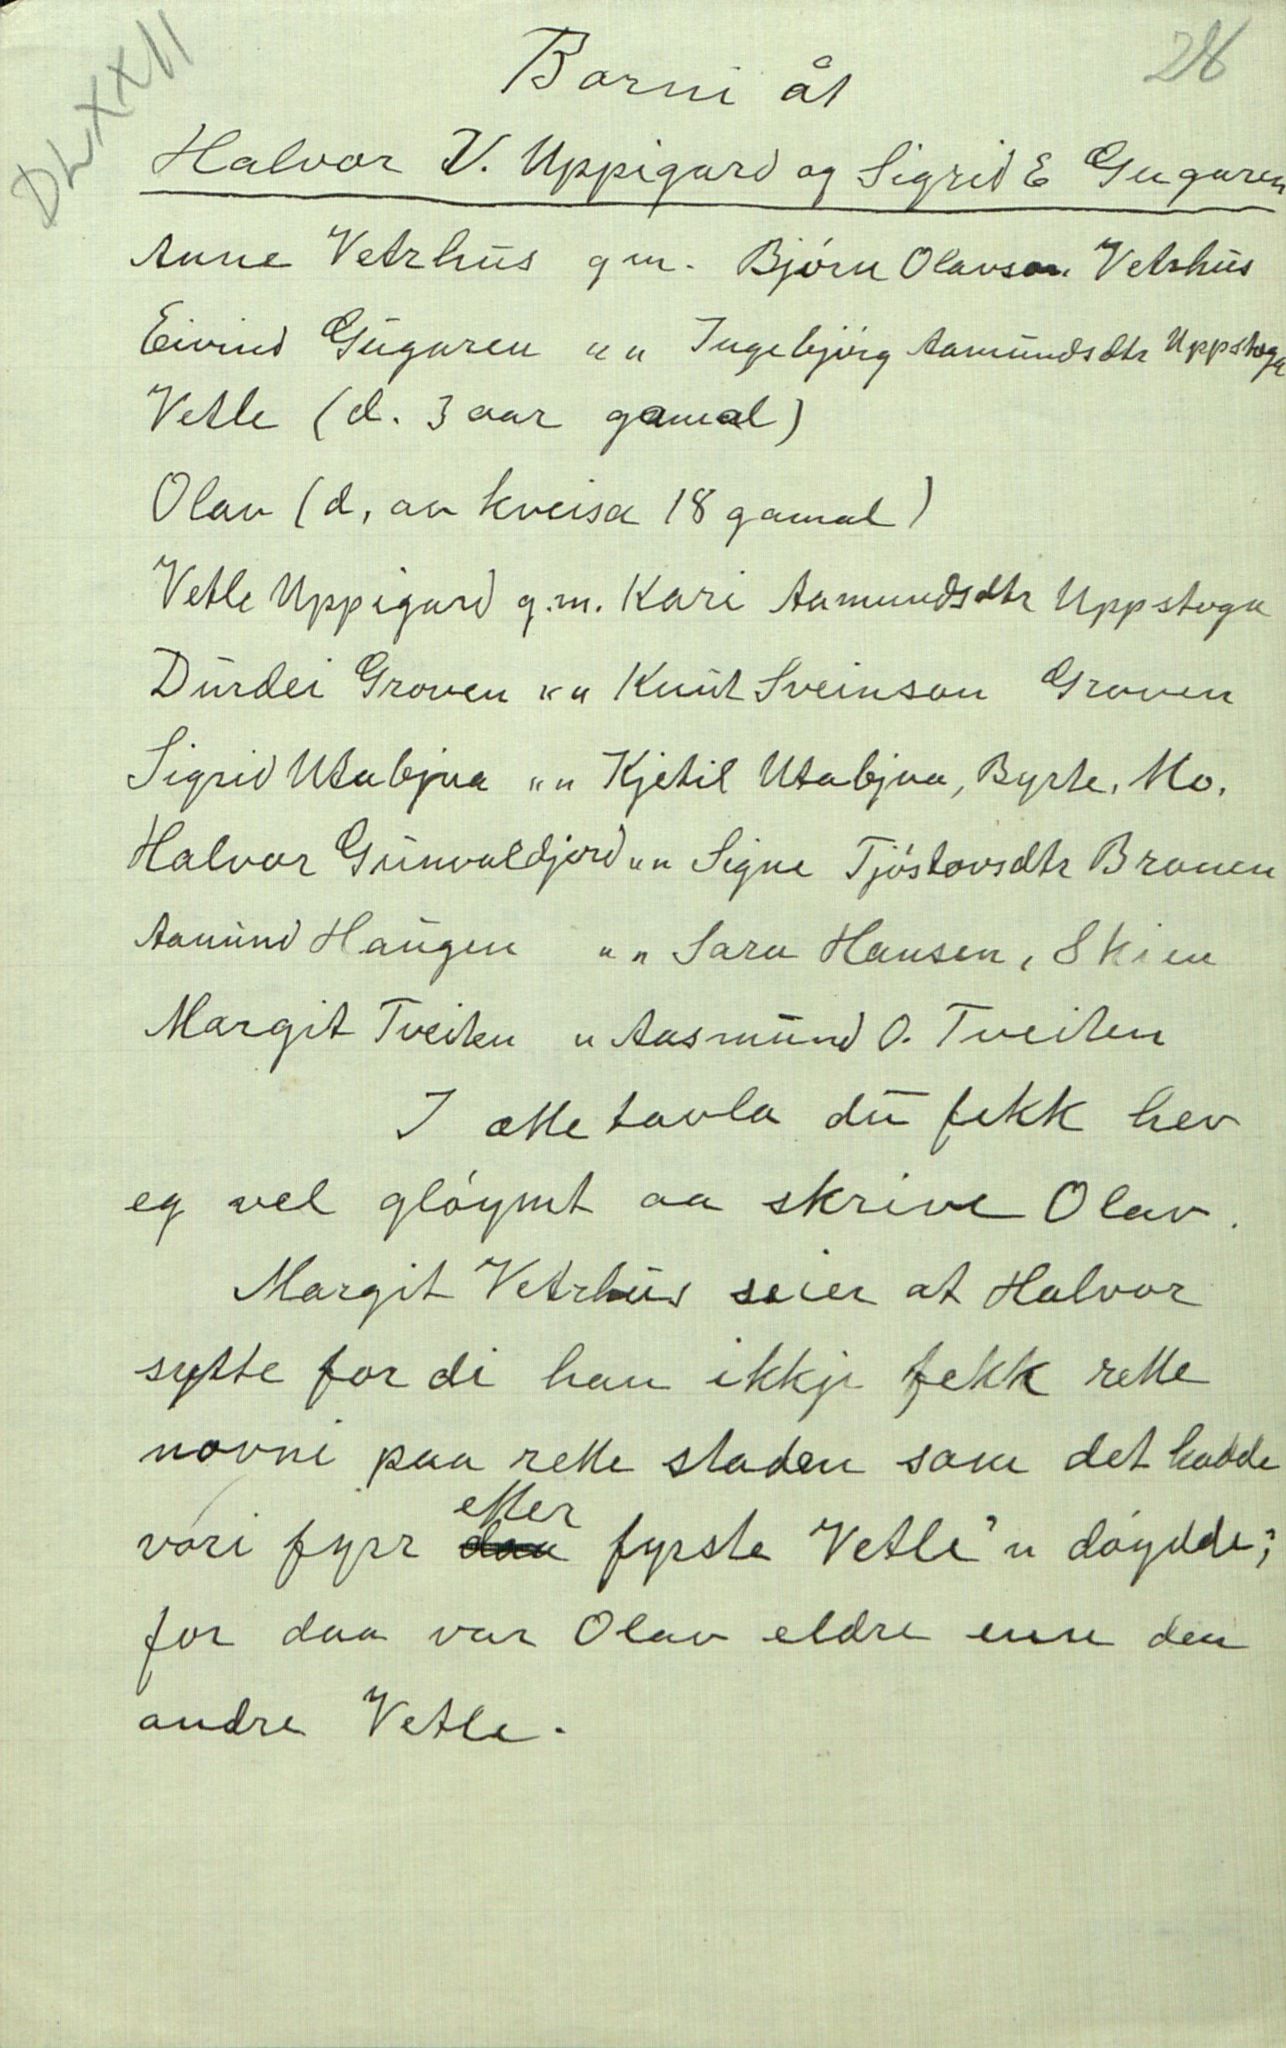 DLXXII
28
Borni åt
Halvor V. Uppigard og Sigrid E Gugaren
Anne Vetrhus gm. Bjørn Olavson Vetrhus
Eivind Gugaren " " Ingebjørg Aamundsdtr Uppstoga
Vetle (d. 3 aar gamal)
Olav (d, av kveisa 18 gamal)
Vetle Uppigard g.m. Kari Aamundsdtr Uppstoga
Durdei Groven " " Knut Sveinson Groven
Sigrid Utabjaa " " Kjetil Utabjaa, Byrte, Mo.
Halvor Gunvaldjord " " Signe Tjøstovsdtr Brauen
Aamund Haugen " " Sara Hansen, Skien
Margit Tveiten " Aasmund O. Tveiten
I ættetavla du fekk hev
eg vel gløymt aa skrive Olav.
Margit Vetrhus seier at Halvor
sytte for di han ikkje fekk rette
novni paa rette staden som det hadde
vori fyrr etter fyrste Vetle'n døydde;
for daa var Olav eldre enn den
andre Vetle.